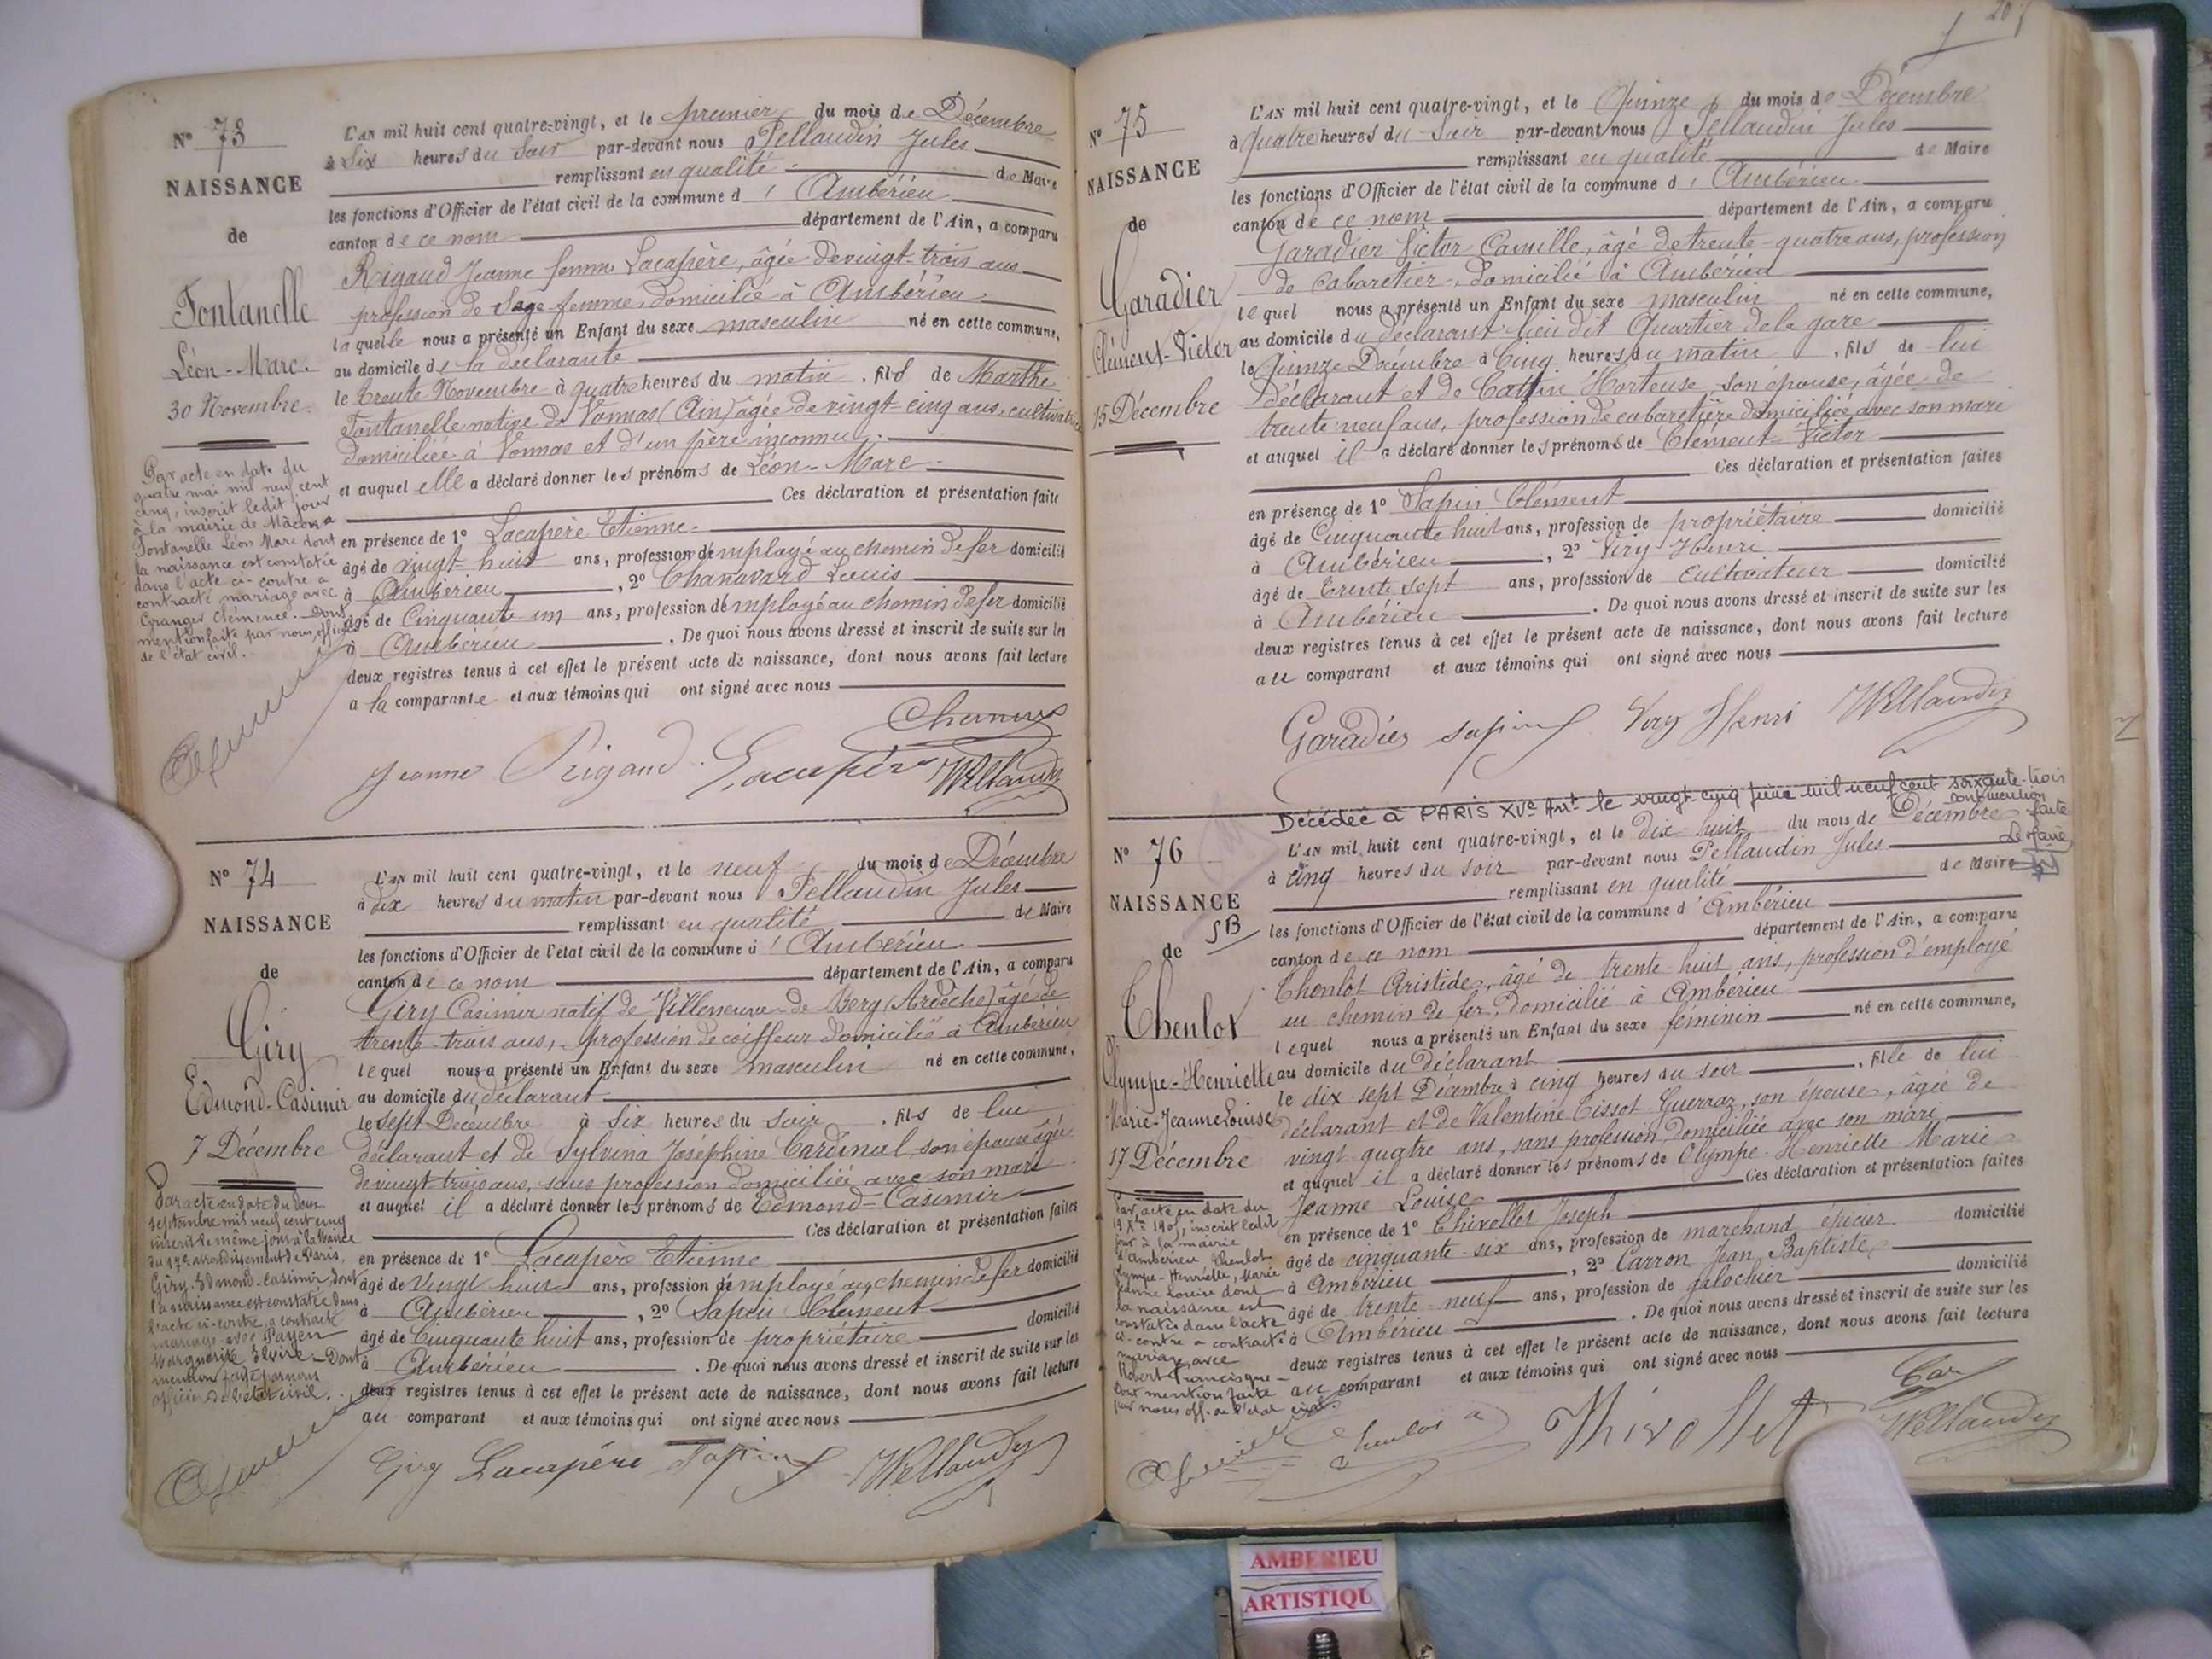 N° 73
NAISSANCE
de
Fontanelle
Léon-Marc.
30 Novembre.
Par acte en date du
quatre mai mil neuf cent
cinq, inscrit ledit jour
à la mairie de Mâcon,
Fontanelle Léon Marc dont
la naissance est constatée
dans l'acte ci-contre a
contracté mariage avec
Granger Clémence. Dont
mention faite par nous, officier
de l'état civil.
L'AN mil huit cent quatre-vingt, et le premier du mois de Décembre
à Six heures du Soir par-devant nous Pellaudin Jules
remplissant en qualité de Maire
les fonctions d'Officier de l'état civil de la commune d' Ambérieu
canton de ce nom département de l'Ain, a comparu
Rigaud Jeanne femme Lacapère, âgée de vingt-trois ans
profession de Sage femme, domicilié à Ambérieu
laquelle nous a présenté un Enfant du sexe masculin né en cette commune,
au domicile de la déclarante
le trente Novembre à quatre heures du matin, fils de Marthe
Fontanelle native de Vonnas (Ain) âgée de vingt-cinq ans, cultivatrice
domiciliée à Vonnas et d'un père inconnu.
et auquel elle a déclaré donner les prénoms de Léon-Marc
Ces déclaration et présentation faite
en présence de 1° Lacapère Etienne
âgé de vingt-huit ans, profession d'employé au chemin de fer domicilié
à Ambérieu, 2° Chanavard Louis
âgé de Cinquante un ans, profession d'employé au chemin de fer domicilié
à Ambérieu. De quoi nous avons dressé et inscrit de suite sur les
deux registres tenus à cet effet le présent acte de naissance, dont nous avons fait lecture
a la comparante et aux témoins qui ont signé avec nous
Jeanne Rigaud Lacapère
N° 74
NAISSANCE
de
Giry
Edmond-Casimir
7 Décembre
Par acte en date du deux
septembre mil neuf cent cinq
inscrit le même jour à la Mairie
du 17e arrondissement de Paris,
Giry Edmond-Casimir, dont
la naissance est constatée dans
l'acte ci-contre a contracté
mariage avec Payen
Marguerite Elvire. Dont
mention faite par nous
officier de l'état civil.
L'AN mil huit cent quatre-vingt, et le neuf du mois de Décembre
à dix heures du matin par-devant nous Pellaudin Jules
remplissant en qualité de Maire
les fonctions d'Officier de l'état civil de la commune d' Ambérieu
canton de ce nom département de l'Ain, a comparu
Giry Casimir natif de Villeneuve-de-Berg (Ardèche) âgé de
trente-trois ans, profession de coiffeur domicilié à Ambérieu
lequel nous a présenté un Enfant du sexe masculin né en cette commune,
au domicile du déclarant
le sept Décembre à Six heures du Soir, fils de lui
déclarant et de Sylvina Joséphine Cardinal, son épouse âgée
de vingt trois ans, sans profession domiciliée avec son mari
et auquel il a déclaré donner les prénoms de Edmond-Casimir
Ces déclaration et présentation faites
en présence de 1° Lacapère Etienne
âgé de Vingt huit ans, profession d'employé au chemin de fer domicilié
à Ambérieu, 2° Sapin Clément
âgé de Cinquante huit ans, profession de propriétaire domicilié
à Ambérieu. De quoi nous avons dressé et inscrit de suite sur les
deux registres tenus à cet effet le présent acte de naissance, dont nous avons fait lecture
au comparant et aux témoins qui ont signé avec nous
Giry Lacapère Sapin
N° 75
NAISSANCE
de
Garadier
Clément-Victor
15 Décembre
L'AN mil huit cent quatre-vingt, et le Quinze du mois de Décembre
à Quatre heures du Soir par-devant nous Pellaudin Jules
remplissant en qualité de Maire
les fonctions d'Officier de l'état civil de la commune d' Ambérieu
canton de ce nom département de l'Ain, a comparu
Garadier Victor-Camille, âgé de trente-quatre ans, profession
de Cabaretier, domicilié à Ambérieu
lequel nous a présenté un Enfant du sexe masculin né en cette commune,
au domicile du déclarant lieu dit Quartier de la gare
le Quinze Décembre à Cinq heures du matin, fils de lui
déclarant et de Cattin Hortense, son épouse, âgée de
trente neuf ans, profession de cabaretière domiciliée avec son mari
et auquel il a déclaré donner les prénoms de Clément-Victor
Ces déclaration et présentation faites
en présence de 1° Sapin Clément
âgé de Cinquante huit ans, profession de propriétaire domicilié
à Ambérieu, 2° Viry Henri
âgé de trente sept ans, profession de cultivateur domicilié
à Ambérieu. De quoi nous avons dressé et inscrit de suite sur les
deux registres tenus à cet effet le présent acte de naissance, dont nous avons fait lecture
au comparant et aux témoins qui ont signé avec nous
Garadier Sapin Viry Henri
Décédée à PARIS XVe Arrt le vingt-cinq juin mil neuf cent soixante-trois
dont mention
faite
Le Maire
N° 76
NAISSANCE
de
SB
Chenlot
Olympe-Henriette
Marie-Jeanne Louise
17 Décembre
Par acte en date du
19 Xbre 1905, inscrit ledit
jour à la mairie
d'Ambérieu Chenlot
Olympe-Henriette, Marie
Jeanne Louise dont
la naissance est
constatée dans l'acte
ci-contre a contracté
mariage avec
Robert Francisque
Dont mention faite
par nous off. de l'état civil.
L'AN mil huit cent quatre-vingt, et le dix huit du mois de Décembre
à cinq heures du soir par-devant nous Pellaudin Jules
remplissant en qualité de Maire
les fonctions d'Officier de l'état civil de la commune d'Ambérieu
canton de ce nom département de l'Ain, a comparu
Chenlot Aristide, âgé de trente-huit ans, profession d'employé
au chemin de fer, domicilié à Ambérieu
lequel nous a présenté un Enfant du sexe féminin né en cette commune,
au domicile du déclarant
le dix sept Décembre à cinq heures du soir, fille de lui
déclarant et de Valentine Tissot-Guerraz, son épouse, âgée de
vingt quatre ans, sans profession, domiciliée avec son mari
et auquel il a déclaré donner les prénoms de Olympe-Henriette-Marie
Jeanne Louise Ces déclaration et présentation faites
en présence de 1° Thivollet Joseph
âgé de cinquante-six ans, profession de marchand épicier domicilié
à Ambérieu, 2° Carron Jean Baptiste
âgé de trente-neuf ans, profession de galochier domicilié
à Ambérieu. De quoi nous avons dressé et inscrit de suite sur les
deux registres tenus à cet effet le présent acte de naissance, dont nous avons fait lecture
au comparant et aux témoins qui ont signé avec nous
Chenlot a Thivollet Car
AMBERIEU
ARTISTIQU